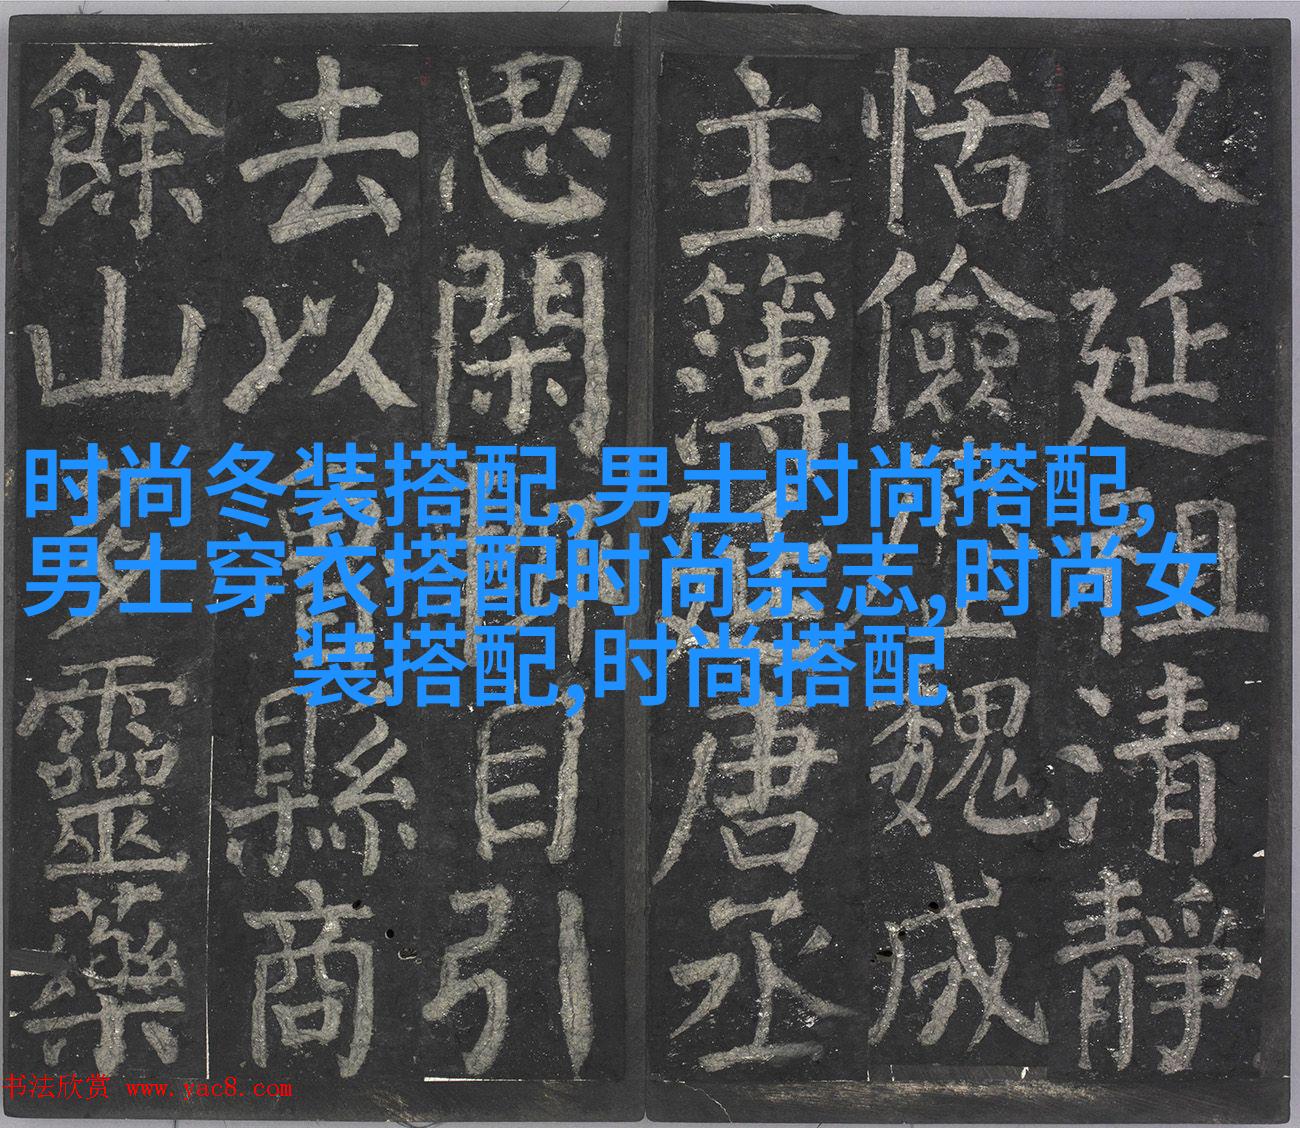 时尚冬装搭配,男士时尚搭配,
男士穿衣搭配时尚杂志,时尚女
装搭配,时尚搭配
父延祖清靜
恬儉魏成
主簿延唐丞
思閑自引
去以魯縣商
餘山多靈藥
书法欣赏 www.yac8.com